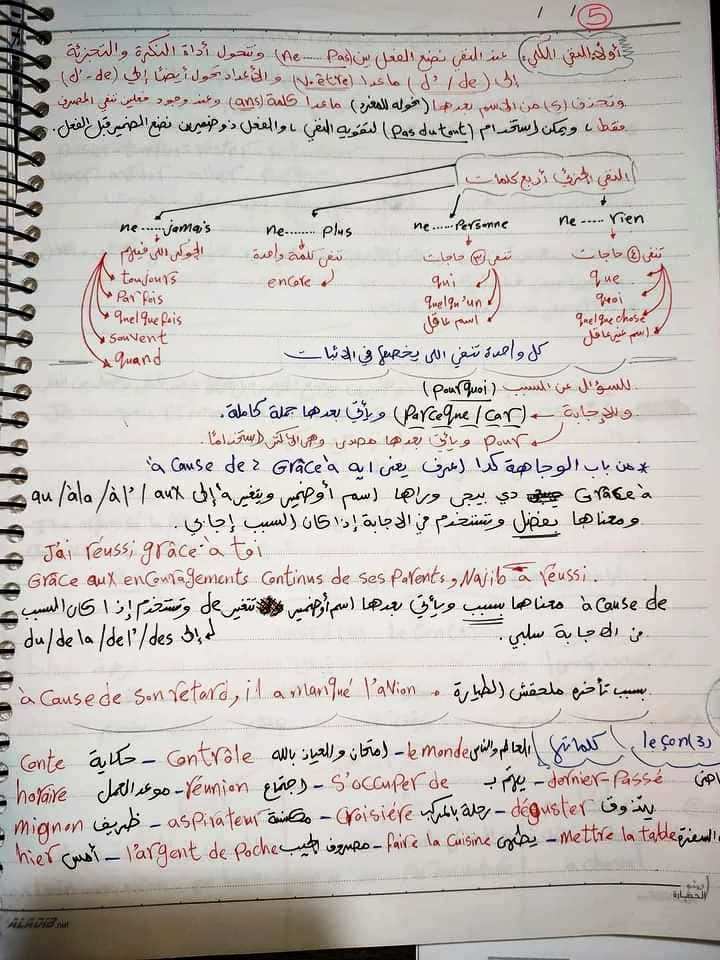 / / 5
أولاً: النفي الكلي: عند النفي نضع الفعل بين (ne.....Pas) وتتحول أداة النكرة والتجزئة
إلى (d' / de) ماعدا (V.être) والأعداد تحول أيضاً إلى (d'-de)
وتحذف (s) من الاسم بعدها (نحوله للمفرد) ماعدا كلمة (ans) وعند وجود فعلين ننفي المصرف
فقط، ويمكن استخدام (Pas du tout) لتقوية النفي، والفعل ذو ضميرين نضع الضمير قبل الفعل.
النفي الجزئي أربع كلمات
ne ..... rien
ne.....Personne
ne........ Plus
ne .....jamais
تنفي ④ حاجات
تنفي ③ حاجات
تنفي كلمة واحدة
que
quoi
quelque chose
اسم غير عاقل
qui
quelqu'un
اسم عاقل
encore
toujours
Parfois
quelquefois
souvent
quand
كل واحدة تنفي اللي يخصها في الاثبات
للسؤال عن السبب (Pourquoi)
وللإجابة ← (Parceque / car) ويأتي بعدها جملة كاملة.
Pour ويأتي بعدها مصدر وهي الأكثر استخداماً.
* من باب الوجاهة كدا اعرف يعني ايه à Cause de و Grâce à
Grâce à دي بيجي وراها اسم أو ضمير ويتغير à إلى au / àla / àl' / aux
ومعناها بفضل وتستخدم في الاجابة إذا كان السبب إجابي.
J'ai réussi grâce à toi
Grâce aux encouragements Continus de ses Parents, Najib a réussi.
à Cause de معناها بسبب ويأتي بعدها اسم أو ضمير تتغير de وتستخدم إذا كان السبب
إلى du / de la / del' / des
من الاجابة سلبي.
à Cause de son retard, il a manqué l'avion . بسبب تأخره ملحقش الطيارة
leçon (3) كلماتي
Conte حكاية - Contrôle امتحان والعياذ بالله - le monde العالم والناس
horaire موعد العمل - réunion اجتماع - S'occuper de يهتم بـ - dernier-Passé
mignon ظريف - aspirateur مكنسة - Croisière رحلة بالمركب - déguster يتذوق
hier أمس - l'argent de Poche مصروف الجيب - faire la Cuisine يطهى - mettre la table السفرة
ALADIB.net